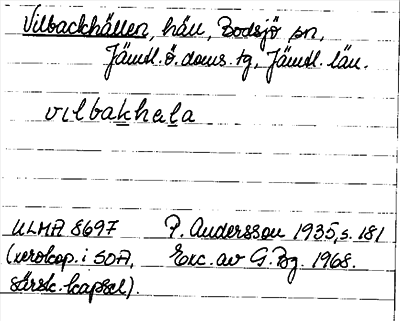 Vilbackhällen, häll, Bodsjö sn,
Jämtl. ö. doms. tg, Jämtl. län.
vılbakhela
ULMA 8697 P. Andersson 1935, s. 181
(xerokop. i SOA, Exc. av G. Bg. 1968.
särsk. kapsel).